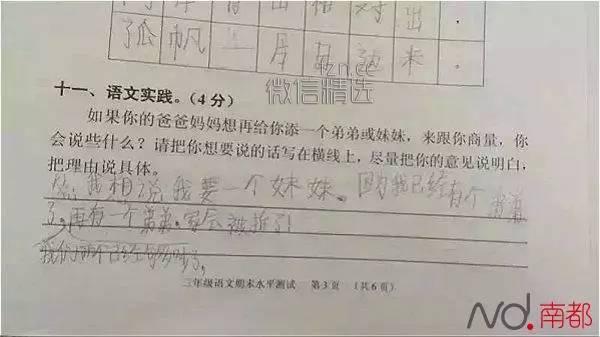 相 对 出 。
孤 帆 一 片 日 边 来 。
微信精选
十一、语文实践。(4分)
如果你的爸爸妈妈想再给你添一个弟弟或妹妹，来跟你商量，你
会说些什么？请把你想要说的话写在横线上，尽量把你的意见说明白，
把理由说具体。
我想说我要一个妹妹。因为我已经有个弟弟
了。再有一个弟弟。家会被拆了!
我们两个已经够吵了。
三年级语文期末水平测试 第3页 (共6页)
Nd.南都